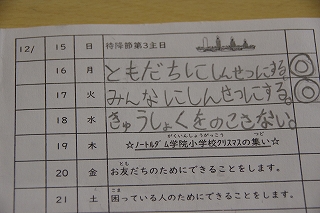 12/ 15 日 待降節第3主日
16 月 ともだちにしんせつにする。
17 火 みんなにしんせつにする。
18 水 きゅうしょくをのこさない。
がくいんしょうがっこう つど
19 木 ☆ノートルダム学院小学校クリスマスの集い☆
とも
20 金 お友だちのためにできることをします。
こま
21 土 困っている人のためにできることをします。